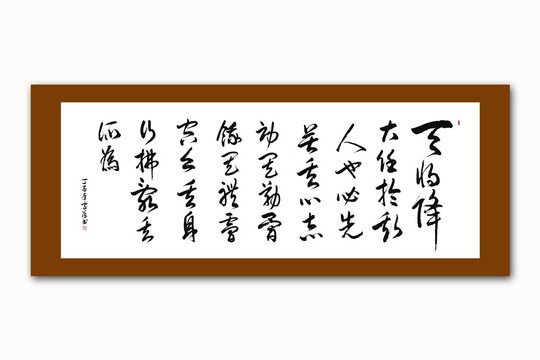 天将降
大任於斯
人也必先
苦其心志
勞其筋骨
餓其體膚
空乏其身
行拂亂其
所為
丁酉年